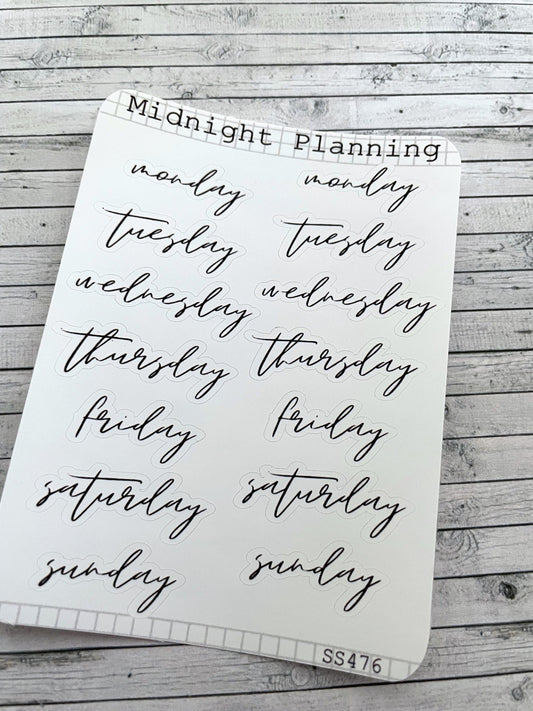 Midnight Planning
monday monday
tuesday tuesday
wednesday wednesday
thursday thursday
friday friday
saturday saturday
sunday sunday
SS476